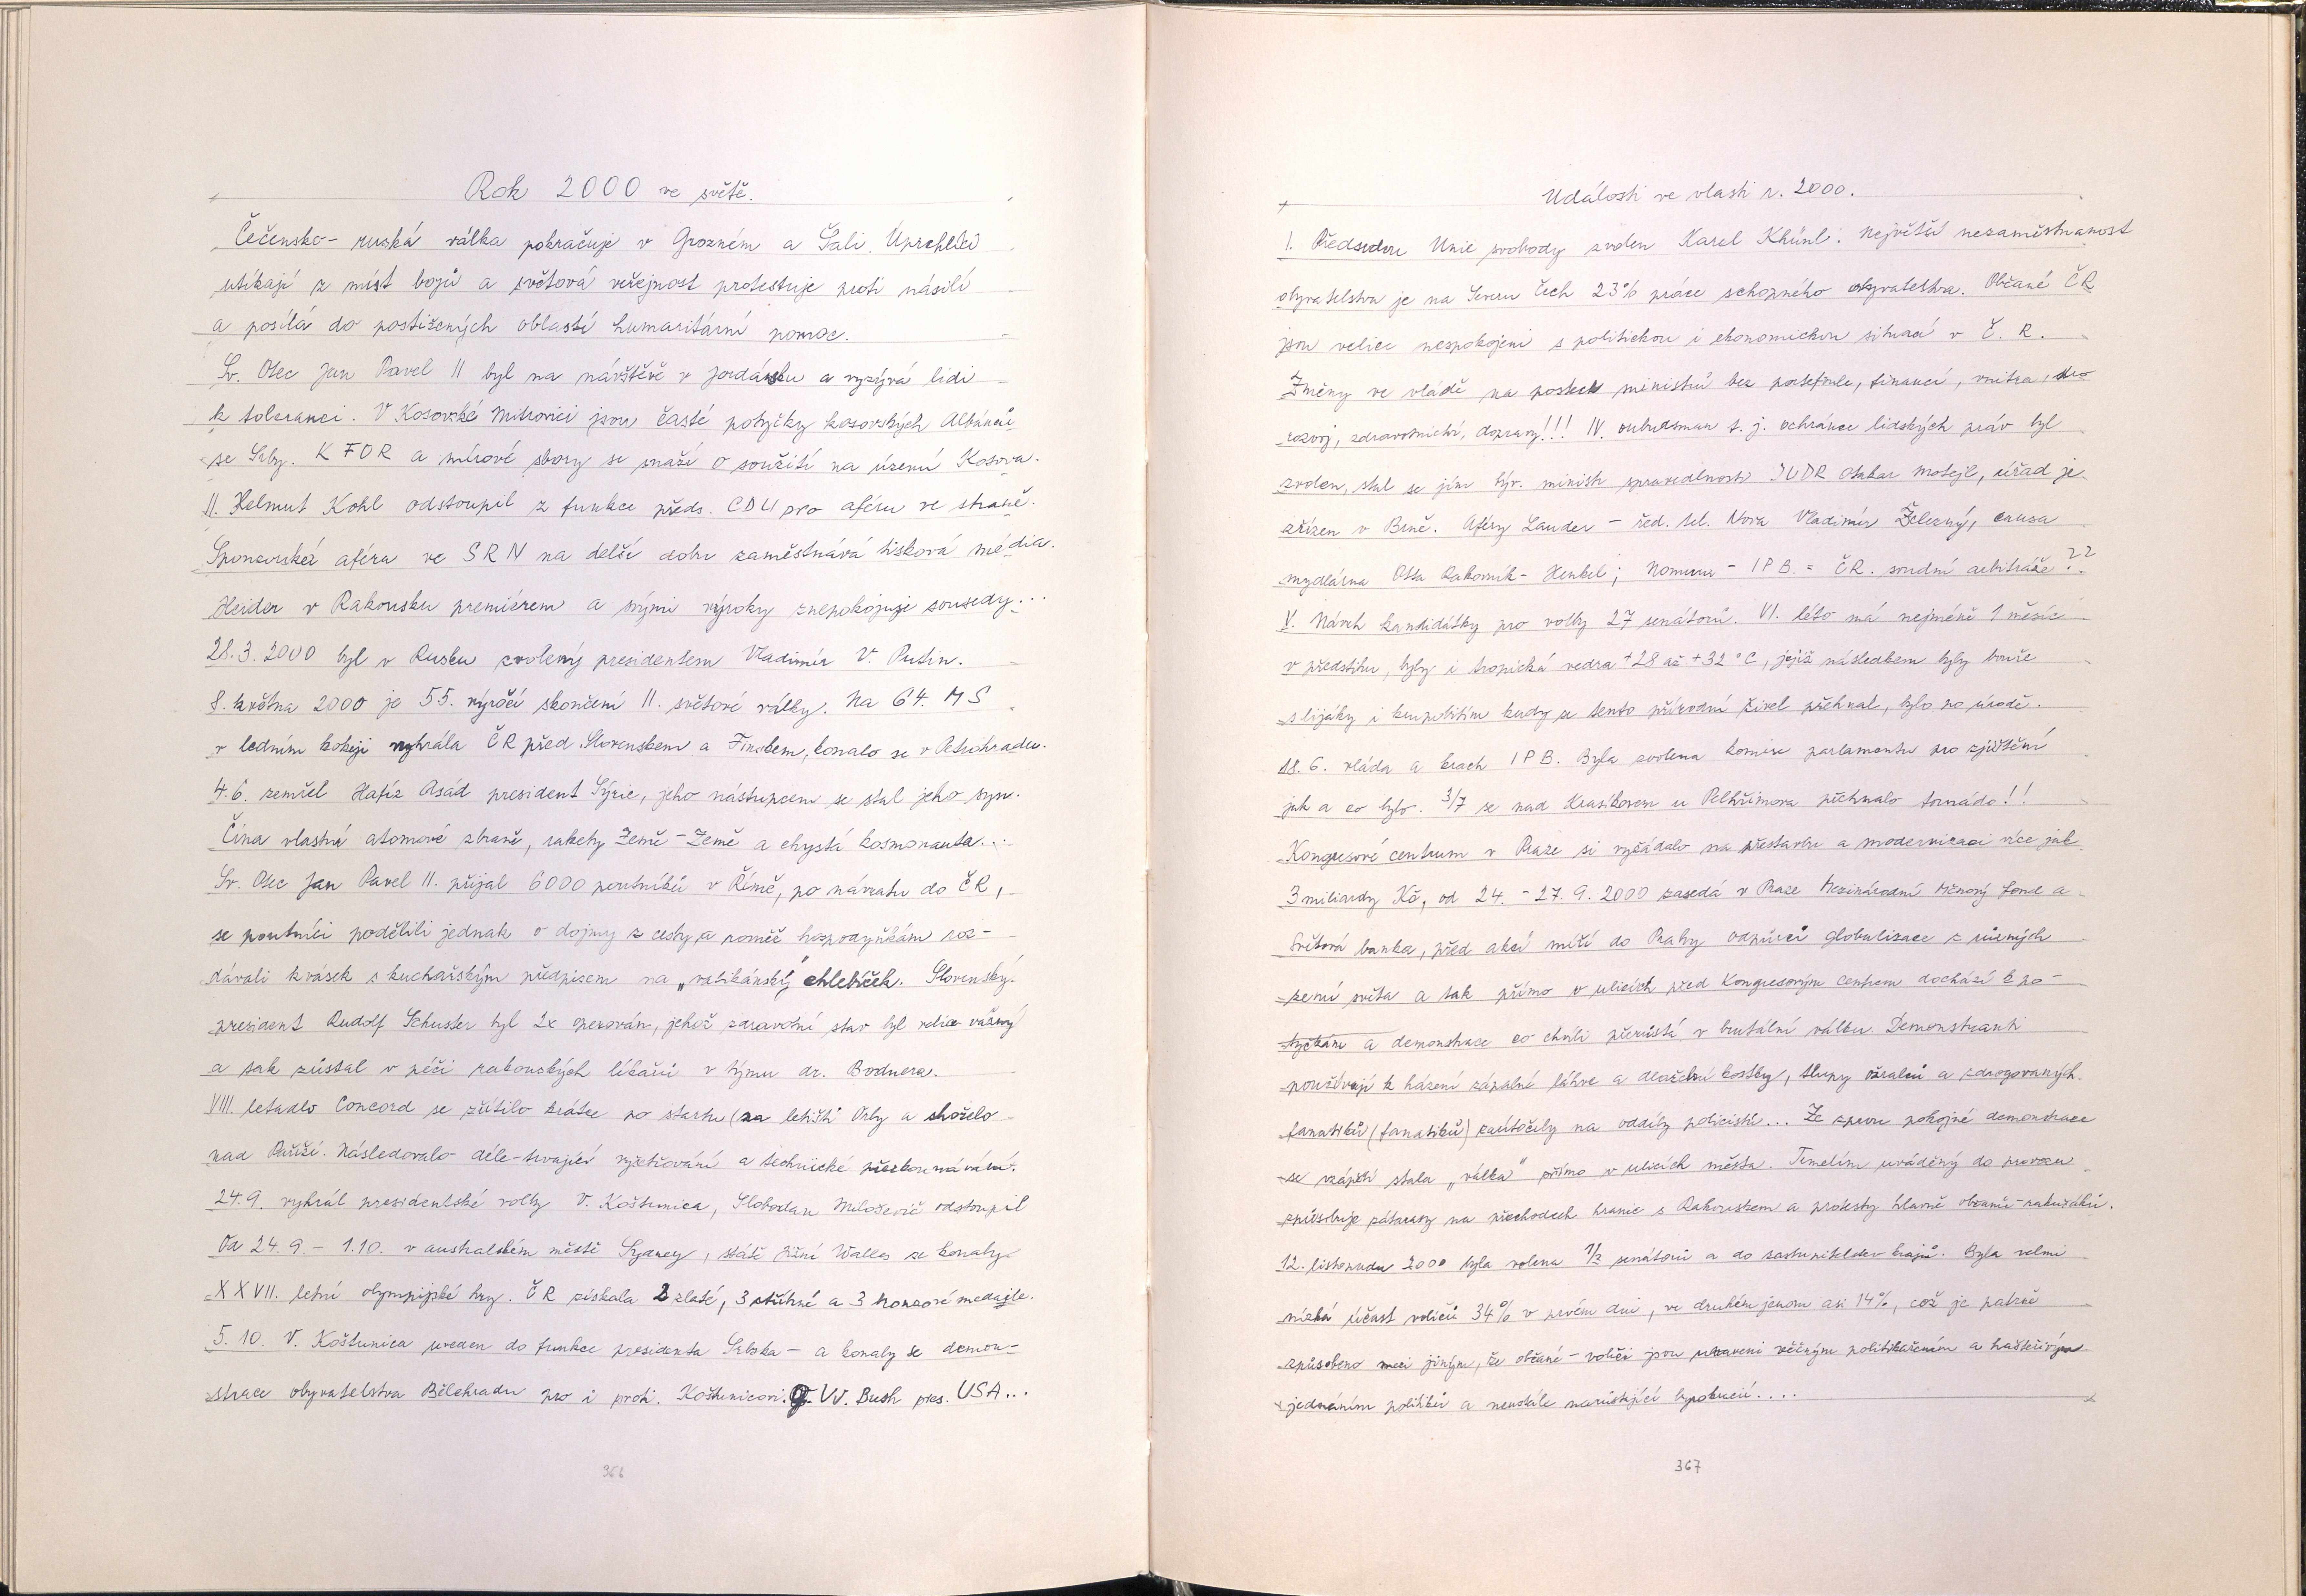 Rok 2000 ve světě.
Čečensko - ruská válka pokračuje v Grozném a Šali. Uprchlíci
utíkají z míst bojů a světová veřejnost protestuje proti násilí
a posílá do postižených oblastí humaritární pomoc.
Sv. Otec Jan Pavel II byl na návštěvě v Jordánsku a vyzývá lidi
k toleranci. V Kosovské Mitrovici jsou časté potyčky kosovských Albánců
se Srby. K FOR a mírové sbory se snaží o soužití na území Kosova.
II. Helmut Kohl odstoupil z funkce předs. CDU pro aféru ve straně.
Sponzorská aféra ve SRN na delší dobu zaměstnává tisková média.
Heider v Rakousku premiérem a svými výroky znepokojuje sousedy...
28.3.2000 byl v Rusku zvolený presidentem Vladimír V. Putin.
8. května 2000 je 55. výročí skončení II. světové války. Na 64. MS
v ledním hokeji vyhrála ČR před Slovenskem a Finskem, konalo se v Petrohradu.
4.6. zemřel Hafíz Asád president Sýrie, jeho nástupcem se stal jeho syn.
Čína vlastní atomové zbraně, rakety Země - Země a chystá kosmonauta...
Sv. Otec Jan Pavel II. přijal 6000 poutníků v Římě, po návratu do ČR,
se poutníci podělili jednak o dojmy z cesty a rovněž hospodyňkám roz-
dávali kvásek s kuchařským předpisem na „vatikánský" chlebíček. Slovenský
president Rudolf Schuster byl 2x operován, jehož zdravotní stav byl velice vážný
a tak zůstal v péči rakouských lékařů v týmu dr. Bodnera.
VIII. letadlo Concord se zřítilo krátce po startu (na letišti Orly a shořelo
nad Paříží. Následovalo déle-trvající vyšetřování a technické přezkoumávání.
24.9. vyhrál presidentské volby V. Koštunica, Slobodan Miloševič odstoupil
Od 24.9. - 1.10. v australském městě Sydney, státě Jižní Walles se konaly
XXVII. letní olympijské hry. ČR získala 2 zlaté, 3 stříbrné a 3 bronzové medajle.
5.10. V. Koštunica uveden do funkce presidenta Srbska - a konaly se demon-
strace obyvatelstva Bělehradu pro i proti. Koštunicovi. G. W. Bush pres. USA...
366
Události ve vlasti r. 2000.
I. Předsedou Unie svobody zvolen Karel Khünl. Největší nezaměstnanost
obyvatelstva je na Severu Čech 23% práce schopného obyvatelstva. Občané ČR
jsou velice nespokojeni s politickou i ekonomickou situací v Č. R.
Změny ve vládě na postech ministrů bez portefeule, financí, vnitra, pro
rozvoj, zdravotnictví, dopravy!!! IV. ombudsman t. j. ochránce lidských práv byl
zvolen, stal se jím býv. ministr spravedlnosti JUDR Otakar Motejl, úřad je
zřízen v Brně. Aféry Lauder - řed. tel. Nova Vladimír Železný, causa
mydlárna Otta Rakovník - Henkel; Nomura - IPB. = ČR. soudní arbitráže??
V. Návrh kandidátky pro volby 27 senátorů. VI. léto má nejméně 1 měsíc
v předstihu, byly i tropická vedra +28 až +32°C, jejíž následkem byly bouře
s lijáky i krupobitím kudy se tento přírodní živel přehnal, bylo po úrodě.
18.6. vláda a krach IPB. Byla zvolena komise parlamentu pro zjištění
jak a co bylo. 3/7 se nad Krasíkovem u Pelhřimova přehnalo tornádo!!
Kongresové centrum v Praze si vyžádalo na přestavbu a modernizaci více jak
3 miliardy Kč, od 24. - 27.9.2000 zasedá v Praze Mezinárodní Měnový Fond a
Světová banka, před akcí míří do Prahy odpůrci globalizace z různých
zemí světa a tak přímo v ulicích před Kongresovým Centrem dochází k po-
tyčkám a demonstrace co chvíli přerůstá v brutální válku. Demonstranti
používají k házení zápalné láhve a dlažební kostky, tlupy ožralců a zdrogovaných
fanatiků (fanatiků) zaútočily na oddíly policistů... Ze zprvu pokojné demonstrace
se vzápětí stala „válka" přímo v ulicích města. Temelín uváděný do provozu
způsobuje zátarasy na přechodech hranic s Rakouskem a protesty hlavně občanů - rakušáků.
12. listopadu 2000 byla volena 1/3 senátorů a do zastupitelstev krajů. Byla velmi
nízká účast voličů 34% v prvém dni, ve druhém jenom asi 14%, což je patrně
způsobeno mezi jiným, že občané - voliči jsou unaveni věčným politikařením a hašteřivým
jednáním politiků a neustále narůstající byrokracií....
367